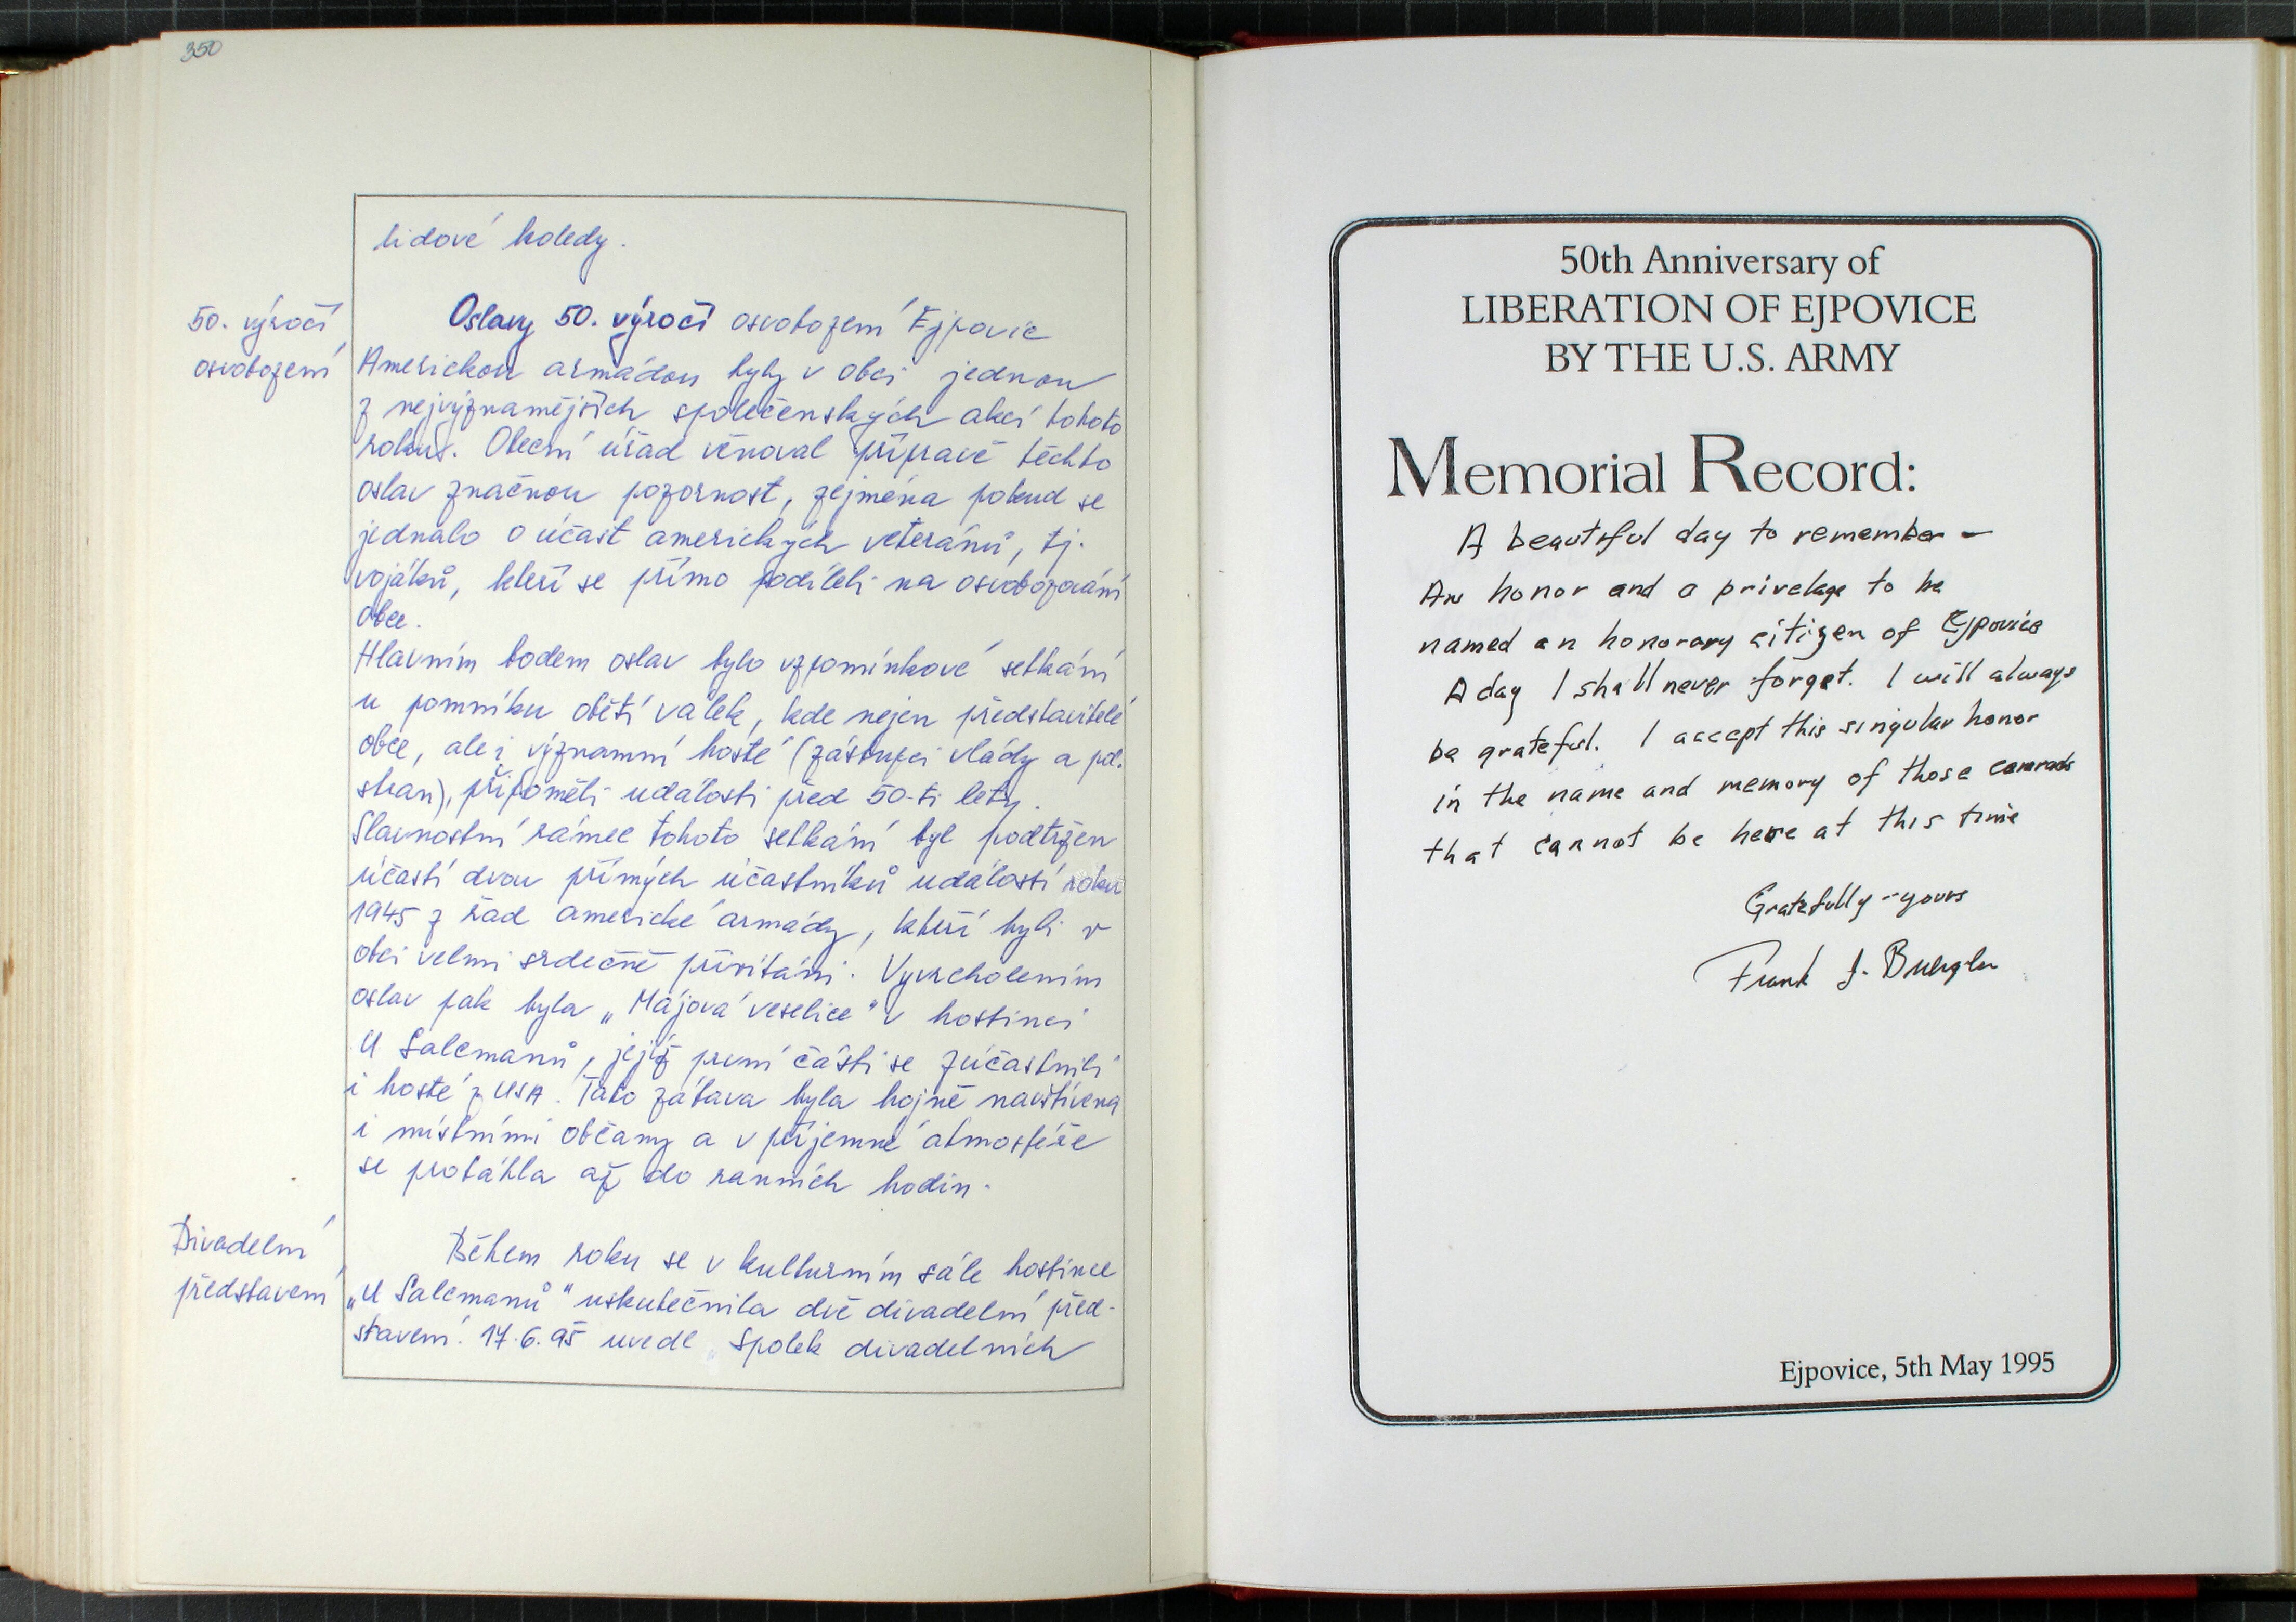 350
lidové koledy.
50. výročí
osvobození
Oslavy 50. výročí osvobození Ejpovic
Americkou armádou byly v obci jednou
z nejvýznamějších společenských akcí tohoto
roku. Obecní úřad věnoval přípravě těchto
oslav značnou pozornost, zejména pokud se
jednalo o účast amerických veteránů, tj.
vojáků, kteří se přímo podíleli na osvobozování
obce.
Hlavním bodem oslav bylo vzpomínkové setkání
u pomníku obětí válek, kde nejen představitelé
obce, ale i významní hosté (zástupci vlády a pol.
stran), připoměli události před 50-ti lety.
Slavnostní rámec tohoto setkání byl podtržen
účastí dvou přímých účastníků událostí roku
1945 z řad americké armády, kteří byli v
obci velmi srdečně přivítáni. Vyvrcholením
oslav pak byla „Májová veselice" v hostinci
U Salcmanů, jejíž první části se zúčastnili
i hosté z USA. Tato zábava byla hojně navštívena
i místními občany a v příjemné atmosféře
se protáhla až do ranních hodin.
Divadelní
představení
Během roku se v kulturním sále hostince
„U Salcmanů" uskutečnila dvě divadelní před-
stavení. 17.6.95 uvedl „Spolek divadelních
50th Anniversary of
LIBERATION OF EJPOVICE
BY THE U.S. ARMY
Memorial Record:
A beautiful day to remember –
An honor and a privelege to be
named an honorary citizen of Ejpovice
A day I shall never forget. I will always
be grateful. I accept this singular honor
in the name and memory of those comrads
that cannot be here at this time
Gratefully - yours
Frank J.
Ejpovice, 5th May 1995